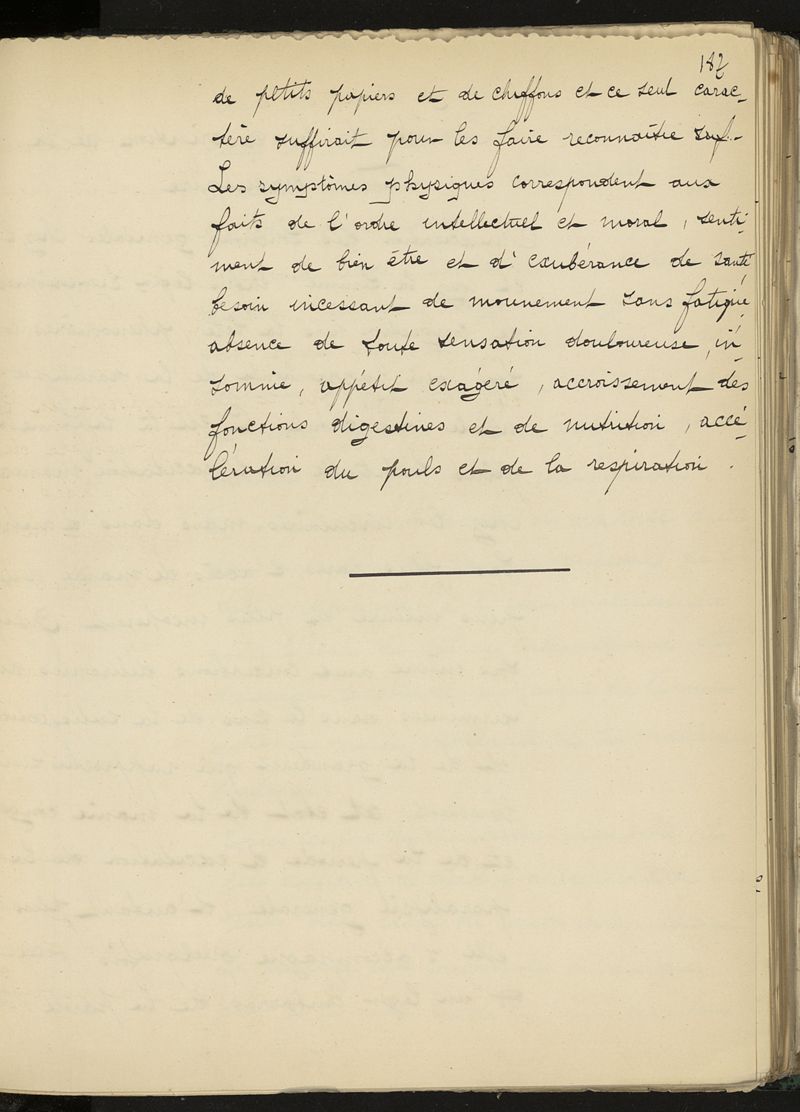 187
de petits papiers et de chiffons et ce seul carac-
tère suffirait pour les faire reconnaître
Les symptômes physiques correspondent aux
faits de l'ordre intellectuel et moral, senti-
ment de bien être et d'exubérance de santé
besoin incessant de mouvement sans fatigue,
absence de toute sensation douloureuse, in-
somnie, appétit exagéré, accroissement des
fonctions digestives et de nutrition, accé-
lération du pouls et de la respiration.